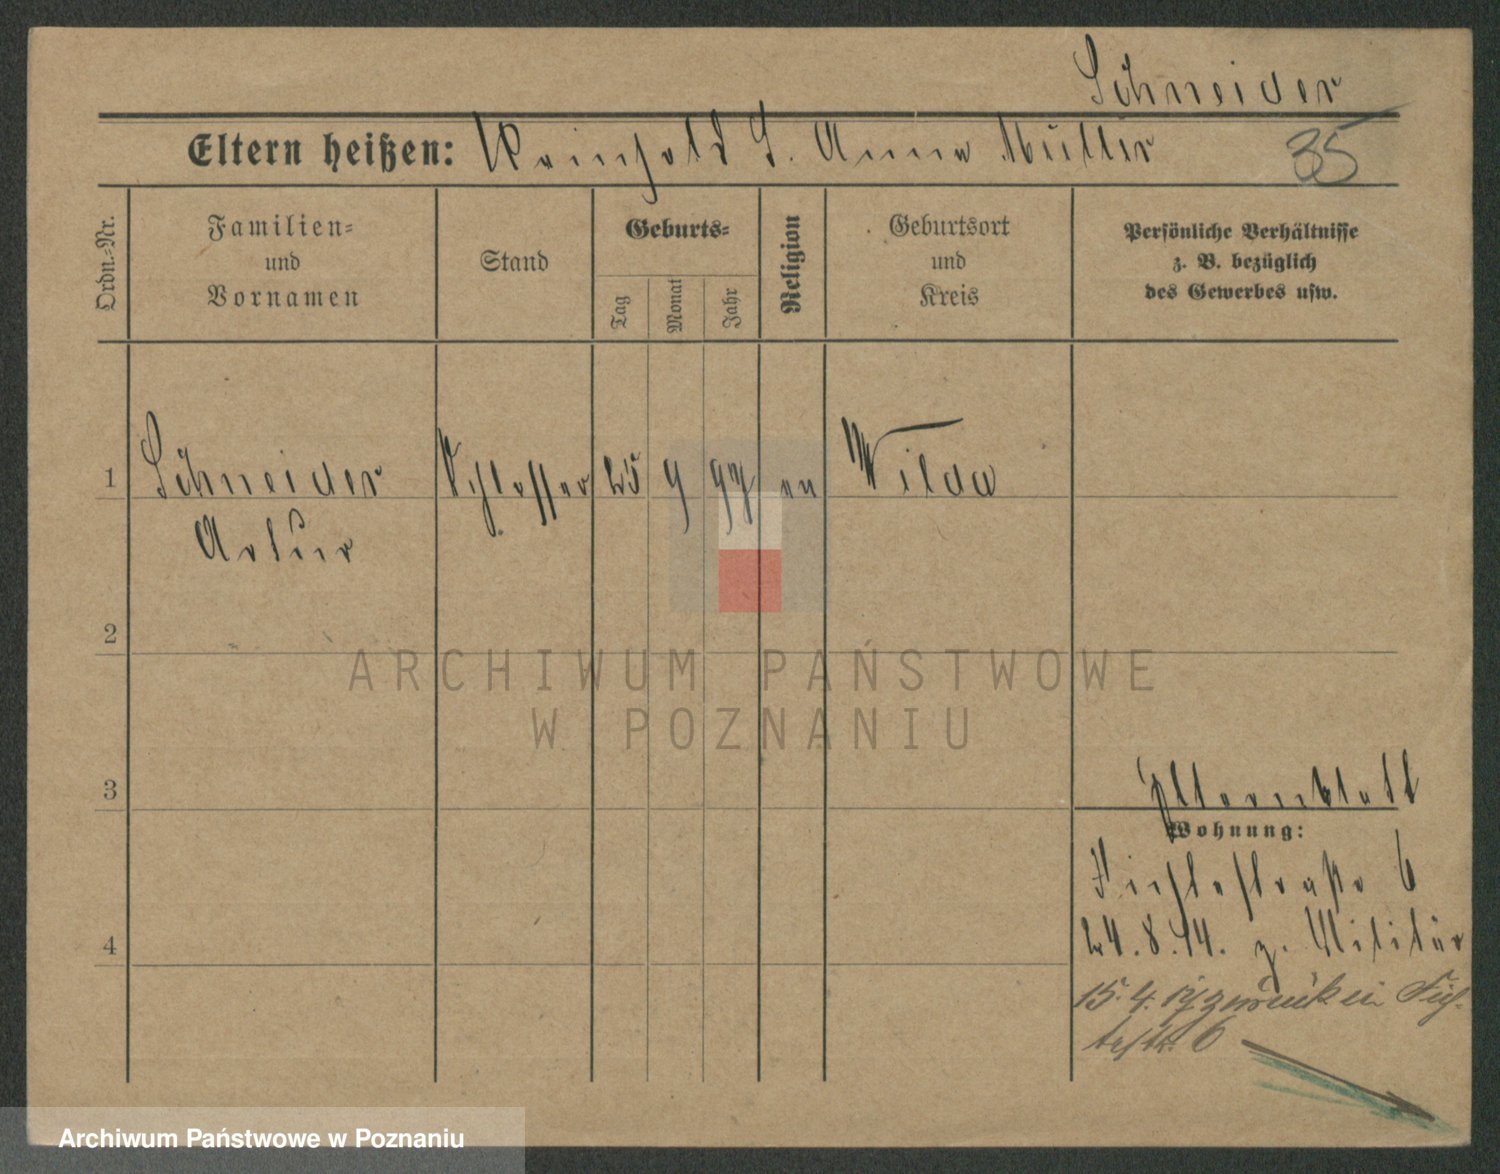 Schneider
Eltern heißen: Reinhold S. Anna Müller
35
Ordn.-Nr.
Familien- und Vornamen
Stand
Geburts-
Tag
Monat
Jahr
Religion
Geburtsort und Kreis
Persönliche Verhältnisse z. B. bezüglich des Gewerbes usw.
1 Schneider Schlosser 25 9 97 ev Wilda
Artur
2
ARCHIWUM PAŃSTWOWE
W POZNANIU
3
Elternblatt
Wohnung:
Fichtestraße 6
4
24.8.14. z. Militär
15.4.17 zurück in Fich-
testr. 6
Archiwum Państwowe w Poznaniu